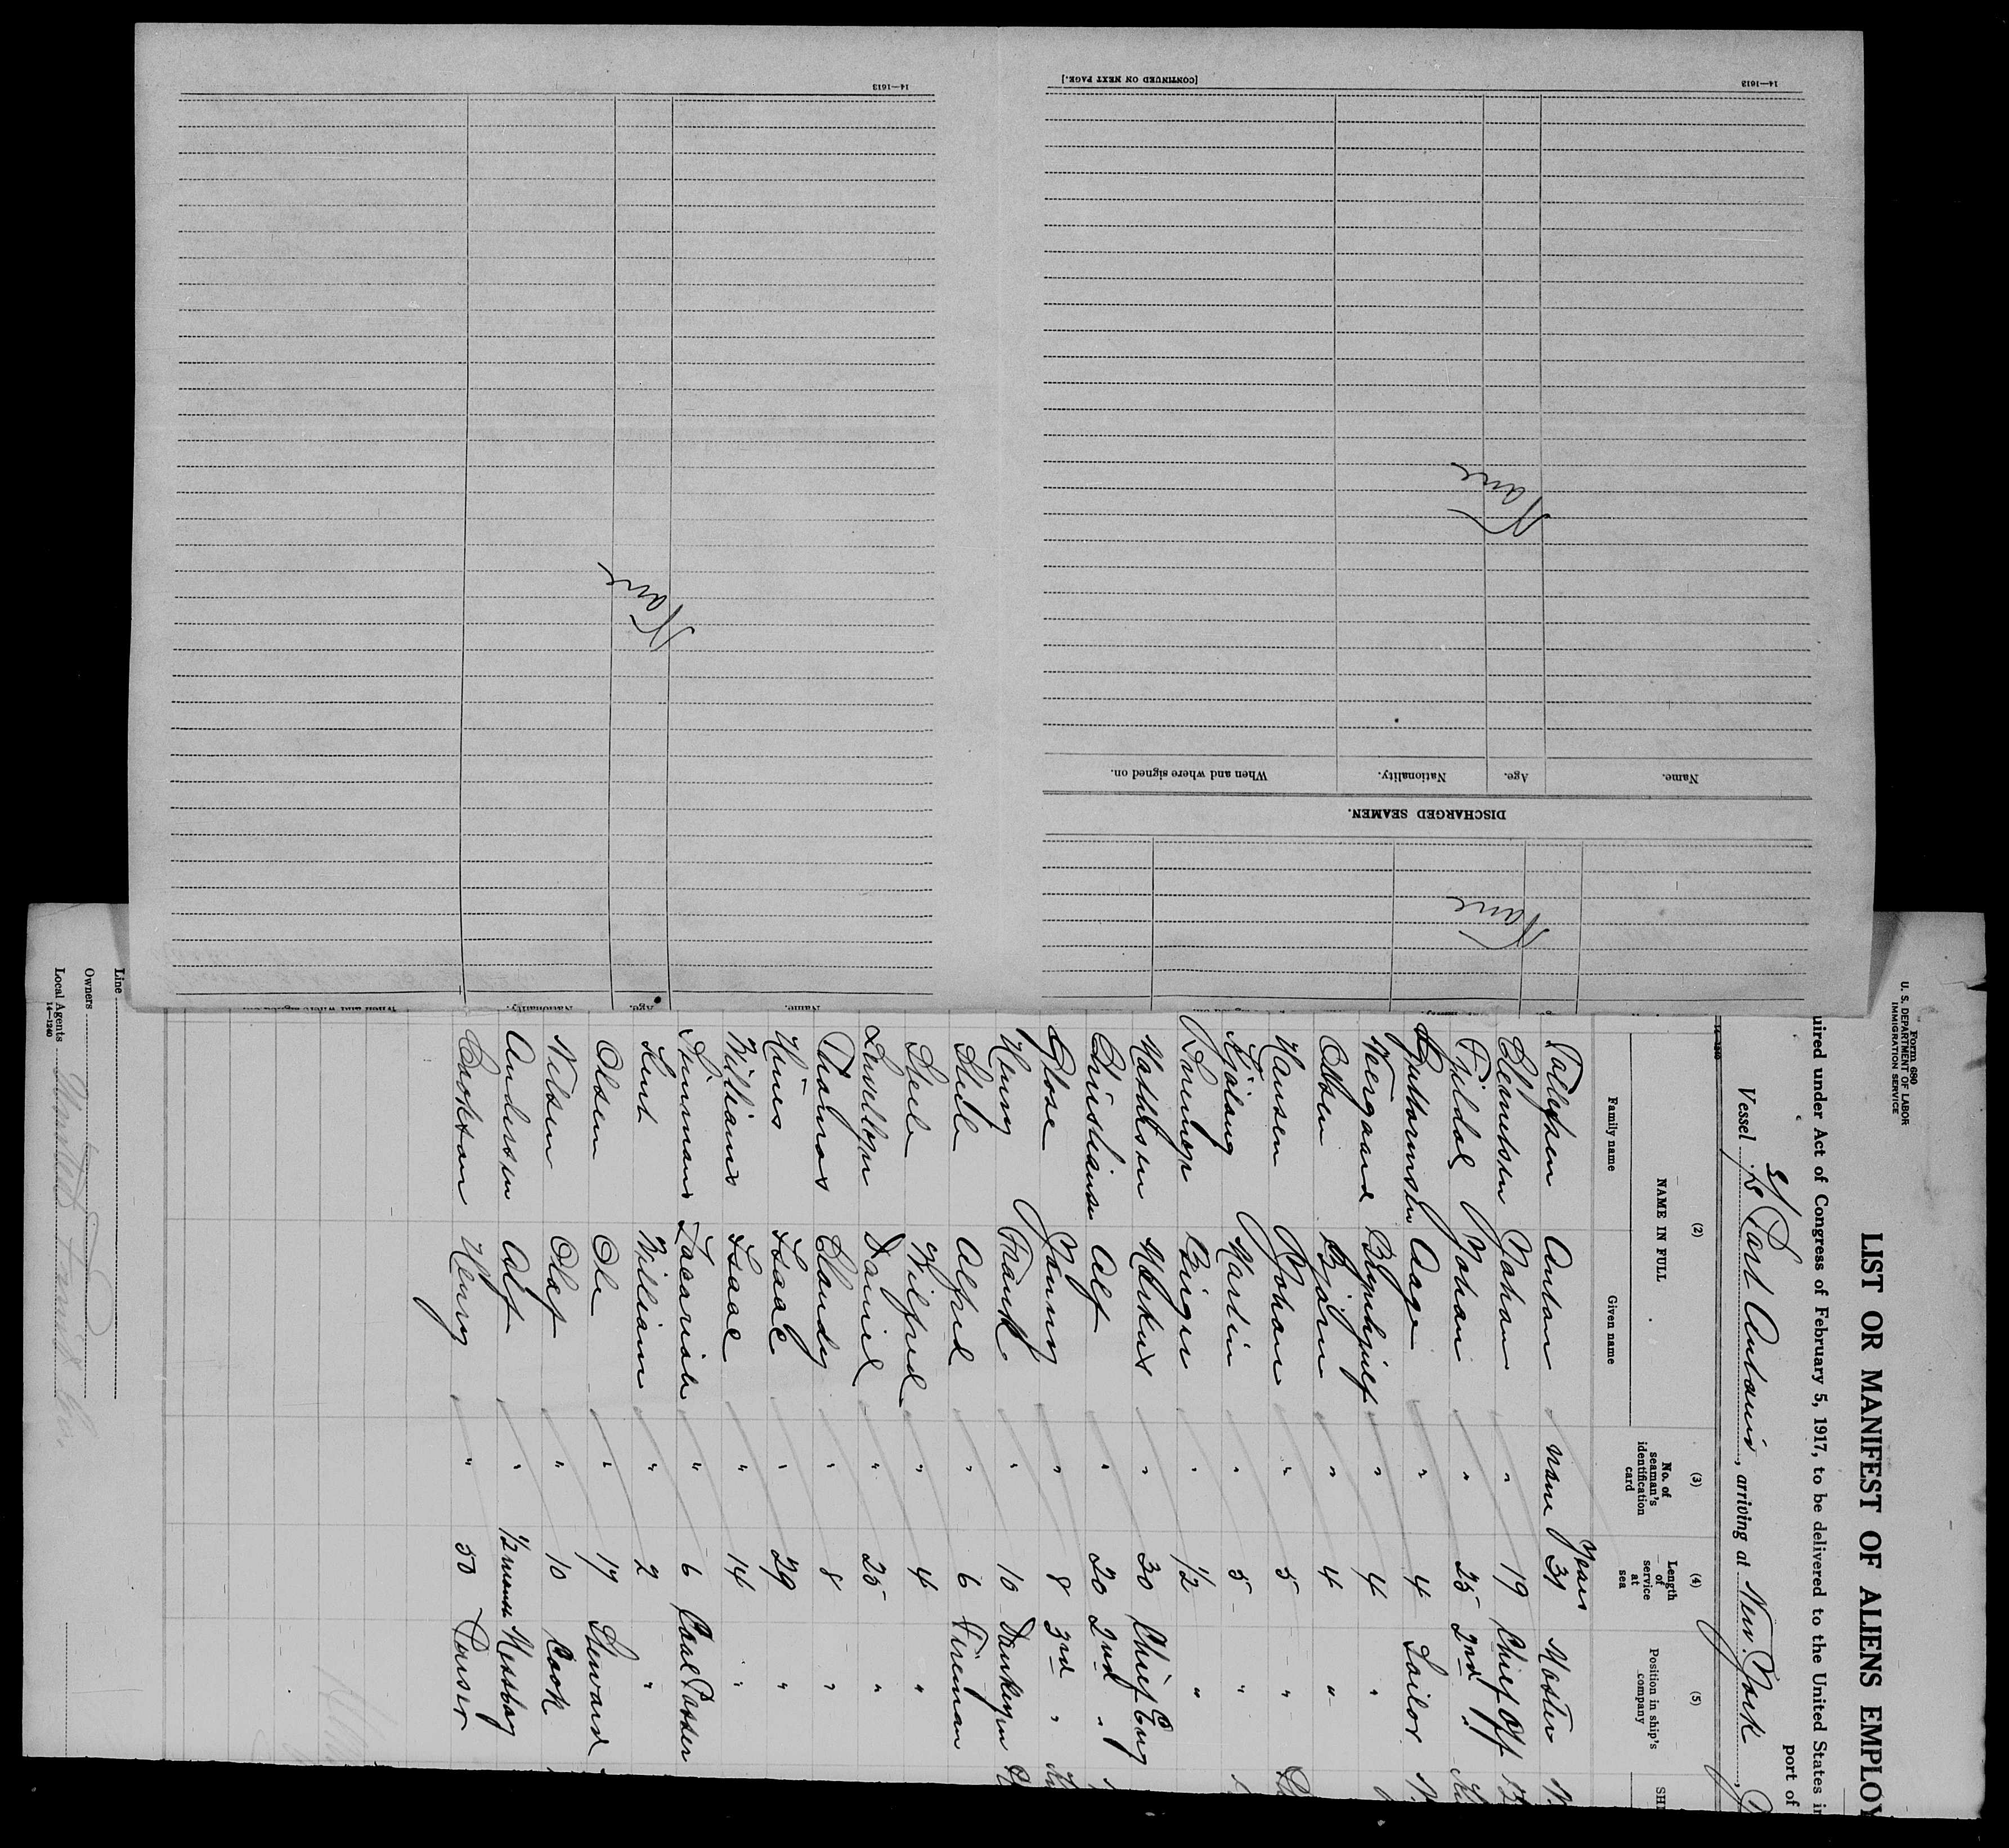 [CONTINUED ON NEXT PAGE.]
14—1613
14—1613
None
None
Name.
Age.
Nationality.
When and where signed on.
DISCHARGED SEAMEN.
None
Name.
Age.
Nationality.
When and where signed on.
Form 680
U. S. DEPARTMENT OF LABOR
IMMIGRATION SERVICE
LIST OR MANIFEST OF ALIENS EMPLOY
uired under Act of Congress of February 5, 1917, to be delivered to the United States i
port of
Vessel S/S Port Antonio, arriving at New York,
(2) (3) (4) (5)
NAME IN FULL No. of seaman's identification card Length of service at sea Position in ship's company SHI
Family name Given name
Years
Tallefsen Anton none 31 Master
Clemetsen Johan " 19 Chief Off
Fjeldal Johan " 25 2nd "
Guttormsen Aage " 4 Sailor
Neergaard Brynhjulf " 4 "
Olsen Björn " 4 "
Hansen Johan " 5 "
Martin " 5 "
Birger " 1/2 "
Mathisen Markus " 30 Chief Eng
Christiansen Alf " 20 2nd "
Glose Jonny " 8 3rd "
Henry Frank " 10 Donkeyman
Steele Alfred " 6 Fireman
Steele Wilfred " 4 "
Lewellyn Daniel " 25 "
Thomas Claudy " 8 "
Hines Isaac " 29 "
Williams Isaac " 14 "
Simmons Zacariah " 6 Coal Passer
Kent William " 2 "
Olsen Ole " 17 Steward
Nilsen Olaf " 10 Cook
Andersen Alf " 1/2 month Messboy
Henry " 50 Purser
Line
Owners
Local Agents United Fruit Co.
14—1240